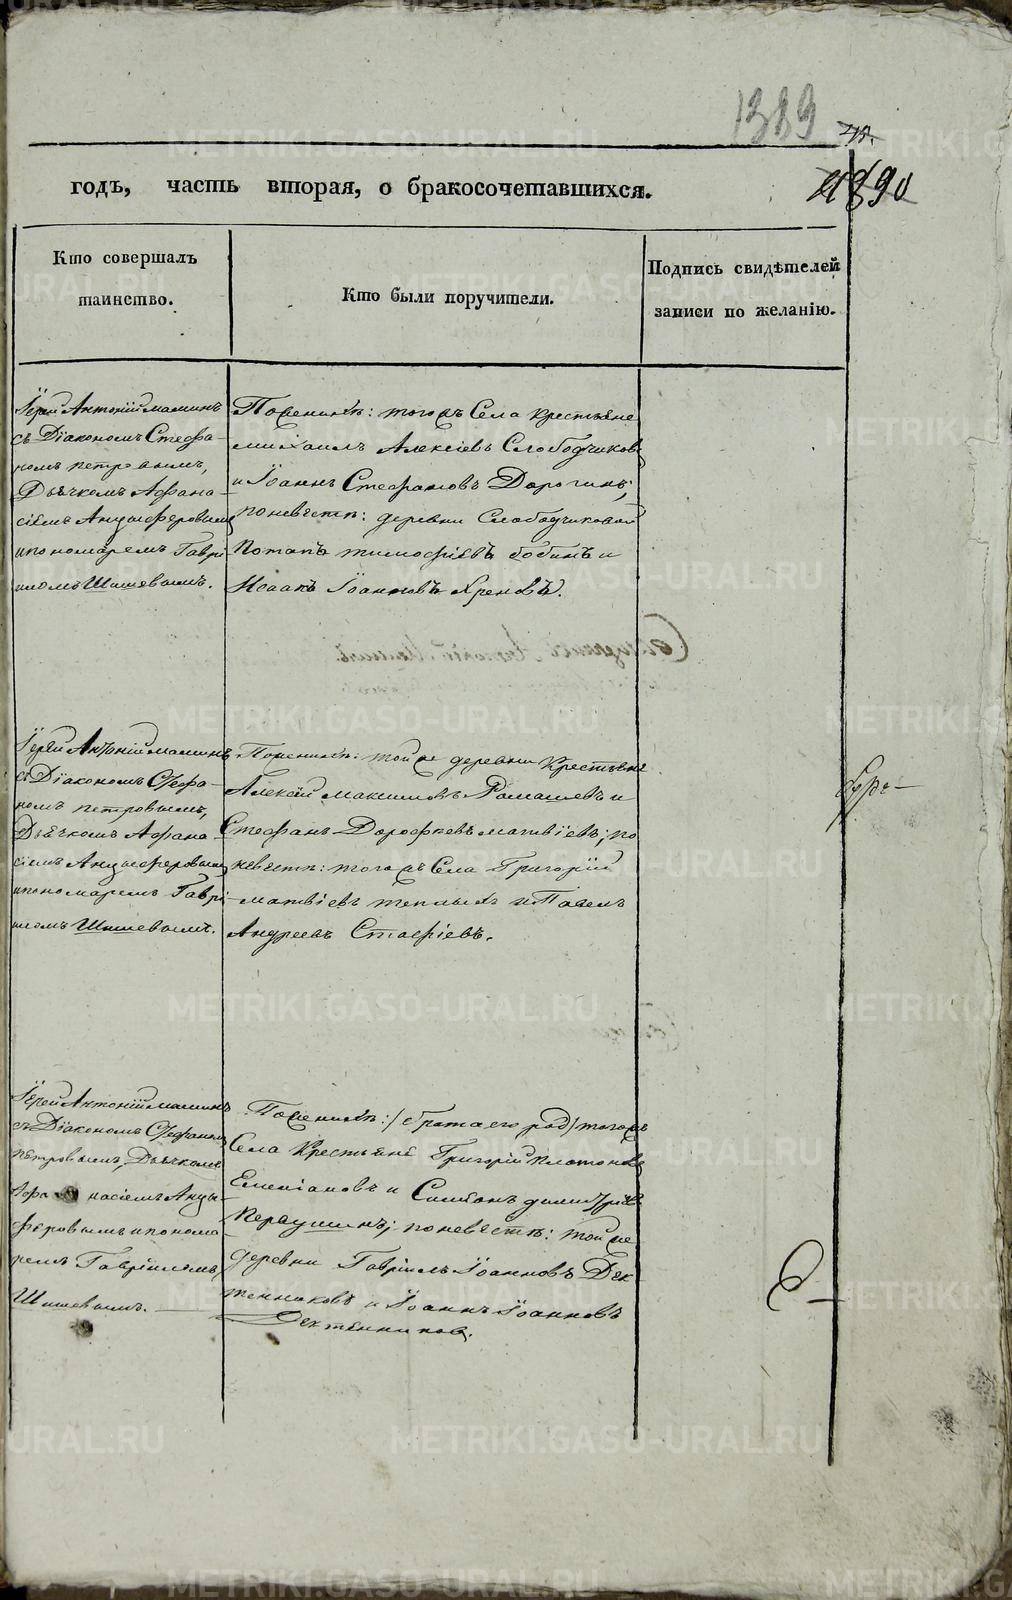 1389
1890
годъ, часть вторая, о бракосочетавшихся.
Кто совершалъ
таинство.
Кто были поручители.
Подпись свидѣтелей
записи по желанію.
Їерей Антоній машинъ
съ Дїакономъ Стефа-
номъ петровымъ,
Дьячкомъ Афана-
сіемъ Анцыферовымъ
и пономаремъ Гаврі-
иломъ Шишевымъ.
Поженихѣ: тогожъ Села крестьяне
михаилъ Алексіевъ Слободчиковъ
и Їоаннъ Стефановъ Дорогинъ;
поневѣстѣ: деревни Слободчиковой
Потапъ тимофіевъ бобинъ и
Исаакъ Їоанновъ Хреновъ.
Їерей Антоній машинъ
съ Дїакономъ Стефа-
номъ петровымъ,
Дьячкомъ Афана-
сіемъ Анцыферовымъ
и пономаремъ Гаврі-
иломъ Шишевымъ.
Поженихѣ: той же деревни Крестьяне
Алексій максимовъ Ромашевъ и
Стефанъ Дорофѣевъ матвіевъ; по
невѣстѣ: тогожъ Села Григорій
матвіевъ теплыхъ и Павелъ
Андреевъ Стафіевъ.
Їерей Антоній машинъ
съ Дїакономъ Стефаномъ
петровымъ, Дьячкомъ
Афанасіемъ Анцы-
феровымъ и понома-
ремъ Гавріиломъ
Шишевымъ.
Поженихѣ: (брата его род) тогожъ
Села Крестьяне Григорій платоновъ
Емеліановъ и Симеонъ димитріевъ
Первушинъ; поневѣстѣ: той же
деревни Гавріилъ Їоанновъ Дех-
тенниковъ и Їоаннъ Їоанновъ
Дехтенниковъ.
METRIKI.GASO-URAL.RU